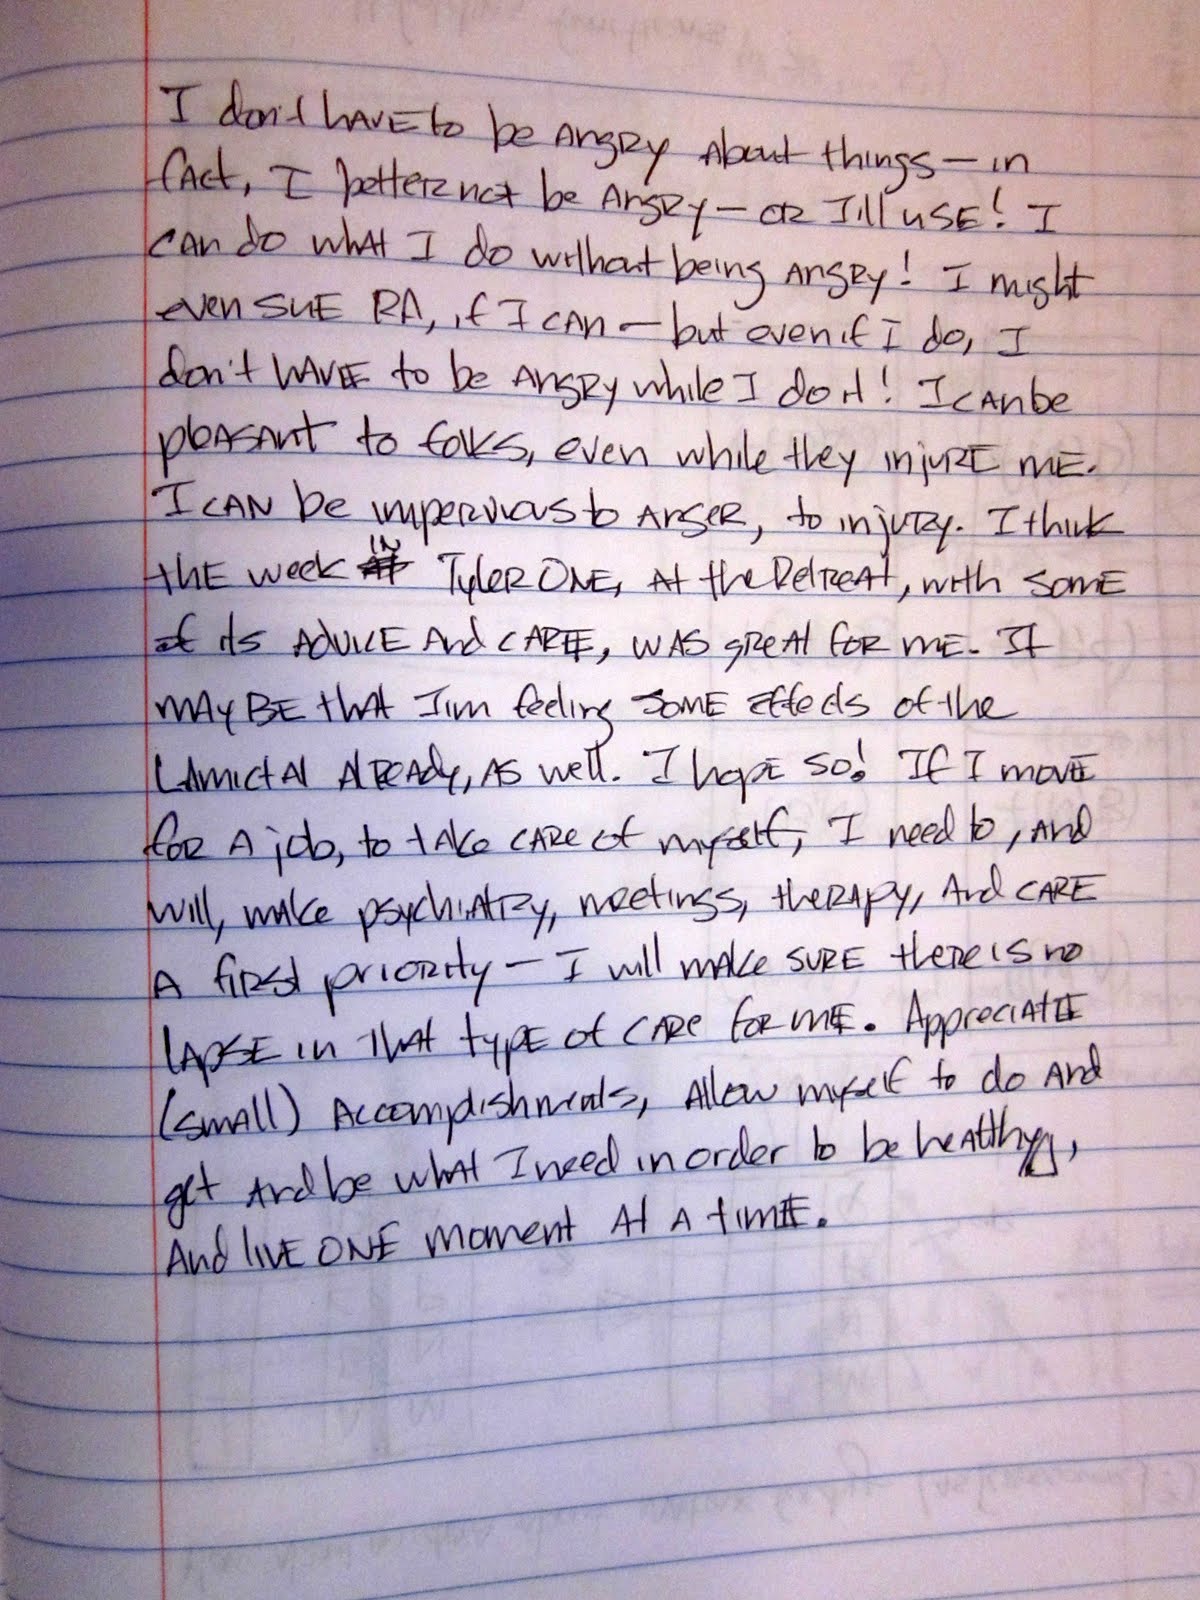 I don't HAVE to be ANGRY About things — in
fact, I better not be ANGRY — OR I'll USE! I
CAN do what I do without being ANGRY! I might
even SUE RA, if I CAN — but even if I do, I
don't HAVE to be ANGRY while I do it! I CAN be
plEASANT to folks, even while they injURE ME.
I CAN be impervious to ANGER, to injURY. I think
thE week IN TylER ONE, At the REtREAt, with SOME
of its ADVICE And CARE, WAS gREAt FOR ME. It
MAY BE that I'm feeling SOME Effects of the
LAmictAl AlREADy, AS well. I hopE SO! If I movE
foR A job, to take CARE of myself, I need to, And
will, make psychiAtRy, meetings, theRApy, And CARE
A fiRst pRiority — I will make SURE there is no
lApSE in that typE of CARE FOR ME. AppreciAtE
(smAll) Accomplishments, Allow myself to do And
get And be what I need in order to be heAlthy,
And livE ONE moment At A timE.